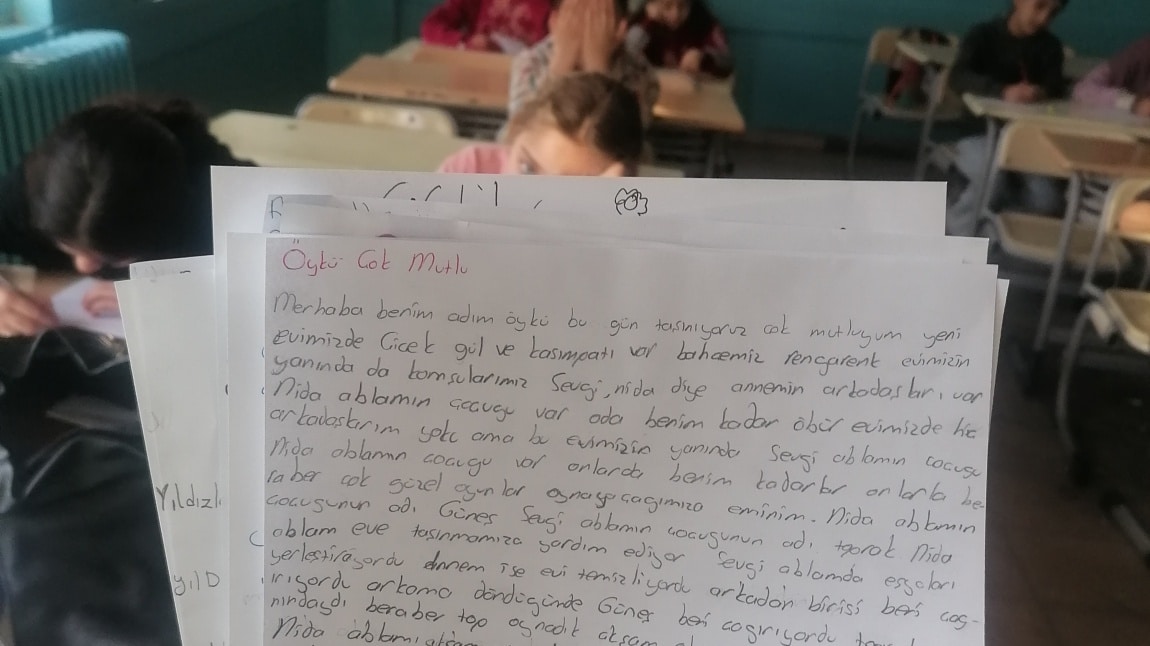 Öykü Cok Mutlu
Merhaba benim adım öykü bu gün taşınıyoruz cok mutluyum yeni
evimizde Cicek gül ve kasımpatı var bahcemiz rengarent evimizin
yanında da komsularımız Sevgi, nida diye annemin arkadaşları var
Nida ablamın cocugu var oda benim kadar öbür evimizde hic
arkadaslarım yoktu ama bu evimizin yanında Sevgi ablamın cocugu
Nida ablamın cocugu var onlarda benim kadarlar onlarla be-
raber cok güzel oyunlar oynayacagımıza eminim. Nida ablamın
cocugunun adı Günes Sevgi ablamın cocugunun adı toprak Nida
ablam eve tasınmamıza yardım ediyor Sevgi ablamda esyaları
yerlestiriyordu Annem ise evi temizliyordu arkadan birisi beni cag-
ırıyordu arkama döndügünde Günes beni cagırıyordu
nındaydı beraber top oynadık aksam
Nida ablam
Yıldızlı
yılD